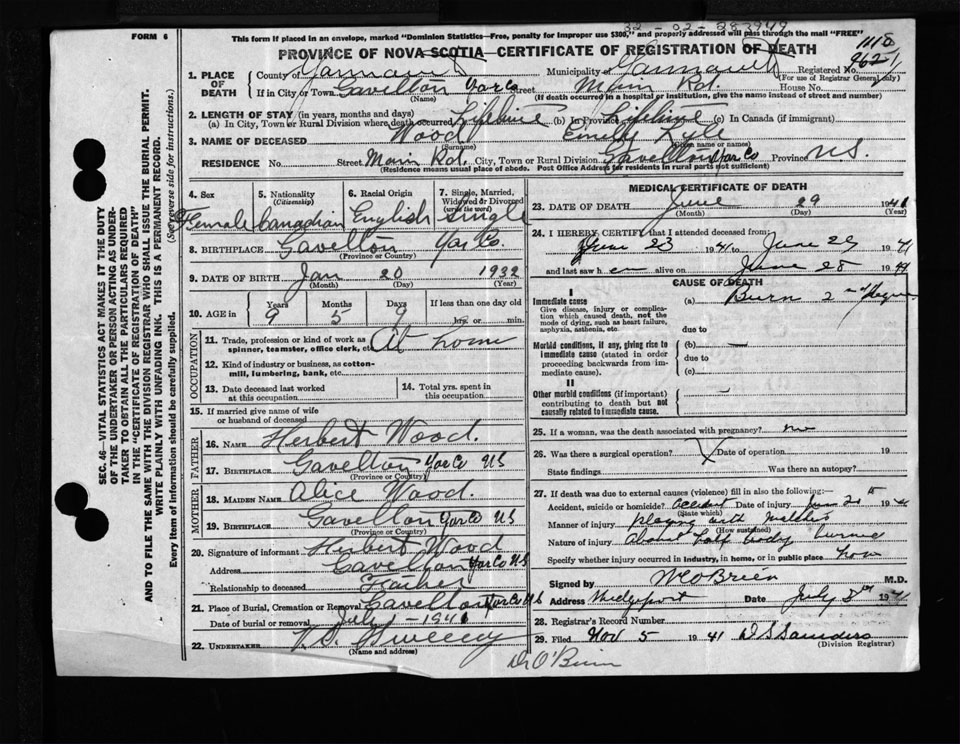 22-02-283949
FORM 6
This form if placed in an envelope, marked "Dominion Statistics—Free, penalty for improper use $300," and properly addressed will pass through the mail "FREE"
PROVINCE OF NOVA SCOTIA—CERTIFICATE OF REGISTRATION OF DEATH
1. PLACE OF DEATH
County of Yarmouth Municipality of Yarmouth Registered No. 9621
(For use of Registrar General only)
If in City or Town Gavelton Yar Co Street Main Rd. House No.
(Name) (If death occurred in a hospital or institution, give the name instead of street and number)
2. LENGTH OF STAY (in years, months and days)
(a) In City, Town or Rural Division where death occurred Lifetime (b) In Province Lifetime (c) In Canada (if immigrant)
3. NAME OF DECEASED Wood Emily Lyle
(Surname) (Given name or names)
RESIDENCE No. Street Main Rd. City, Town or Rural Division Gavelton Yar Co Province N.S.
(Residence means usual place of abode. Post Office Address for residents in rural parts not sufficient)
4. Sex Female
5. Nationality (Citizenship) Canadian
6. Racial Origin English
7. Single, Married, Widowed or Divorced (write the word) Single
8. BIRTHPLACE Gavelton Yar Co.
(Province or Country)
9. DATE OF BIRTH Jan 20 1932
(Month) (Day) (Year)
10. AGE in Years 9 Months 5 Days 9 If less than one day old hrs. or min.
OCCUPATION
11. Trade, profession or kind of work as spinner, teamster, office clerk, etc. At home
12. Kind of industry or business, as cotton-mill, lumbering, bank, etc.
13. Date deceased last worked at this occupation
14. Total yrs. spent in this occupation
15. If married give name of wife or husband of deceased
FATHER
16. NAME Herbert Wood.
17. BIRTHPLACE Gavelton Yar Co NS
(Province or Country)
MOTHER
18. MAIDEN NAME Alice Wood.
19. BIRTHPLACE Gavelton Yar Co NS
(Province or Country)
20. Signature of informant Herbert Wood
Address Gavelton Yar Co NS
Relationship to deceased Father
21. Place of Burial, Cremation or Removal Gavelton Yar Co NS
Date of burial or removal July 1 - 1941
22. UNDERTAKER V.S. Sweeny
(Name and address)
Dr O'Brien
MEDICAL CERTIFICATE OF DEATH
23. DATE OF DEATH June 29 1941
(Month) (Day) (Year)
24. I HEREBY CERTIFY that I attended deceased from:
June 23 1941 to June 29 1941
and last saw h er alive on June 28 1941
CAUSE OF DEATH
I
Immediate cause (a) Burn 2nd degree
Give disease, injury or complication which caused death, not the mode of dying, such as heart failure, asphyxia, asthenia, etc.
due to
Morbid conditions, if any, giving rise to immediate cause (stated in order proceeding backwards from immediate cause). (b) —
due to
(c)
II
Other morbid conditions (if important) contributing to death but not causally related to immediate cause.
25. If a woman, was the death associated with pregnancy? no
26. Was there a surgical operation? Date of operation 19
State findings Was there an autopsy?
27. If death was due to external causes (violence) fill in also the following:—
Accident, suicide or homicide? Accident Date of injury 19 41
(State which)
Manner of injury playing with
(How sustained)
Nature of injury About half body burned
Specify whether injury occurred in industry, in home, or in public place home
Signed by M.D.
Address Date July 19 41
28. Registrar's Record Number
29. Filed Nov 5 1941 D S Saunders
(Division Registrar)
SEC. 46—VITAL STATISTICS ACT MAKES IT THE DUTY OF THE UNDERTAKER OR PERSON ACTING AS UNDERTAKER TO OBTAIN ALL THE PARTICULARS REQUIRED IN THE "CERTIFICATE OF REGISTRATION OF DEATH" AND TO FILE THE SAME WITH THE DIVISION REGISTRAR WHO SHALL ISSUE THE BURIAL PERMIT.
WRITE PLAINLY WITH UNFADING INK. THIS IS A PERMANENT RECORD.
Every item of information should be carefully supplied. (See reverse side for instructions.)